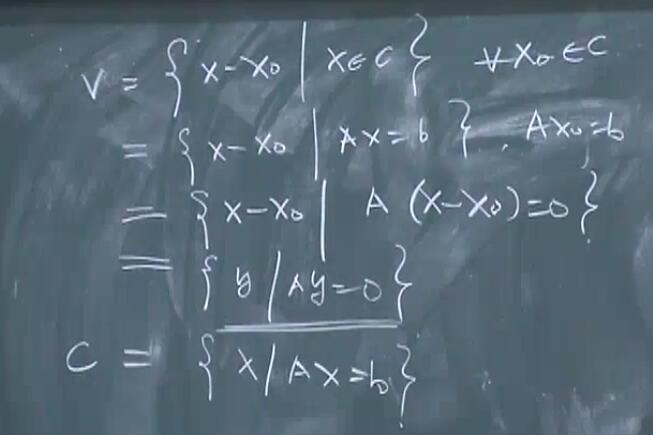 V = { x-x₀ | x∈C } ∀x₀∈C
= { x-x₀ | Ax=b }, Ax₀=b
= { x-x₀ | A (x-x₀)=0 }
= { y | Ay=0 }
C = { x | Ax=b }